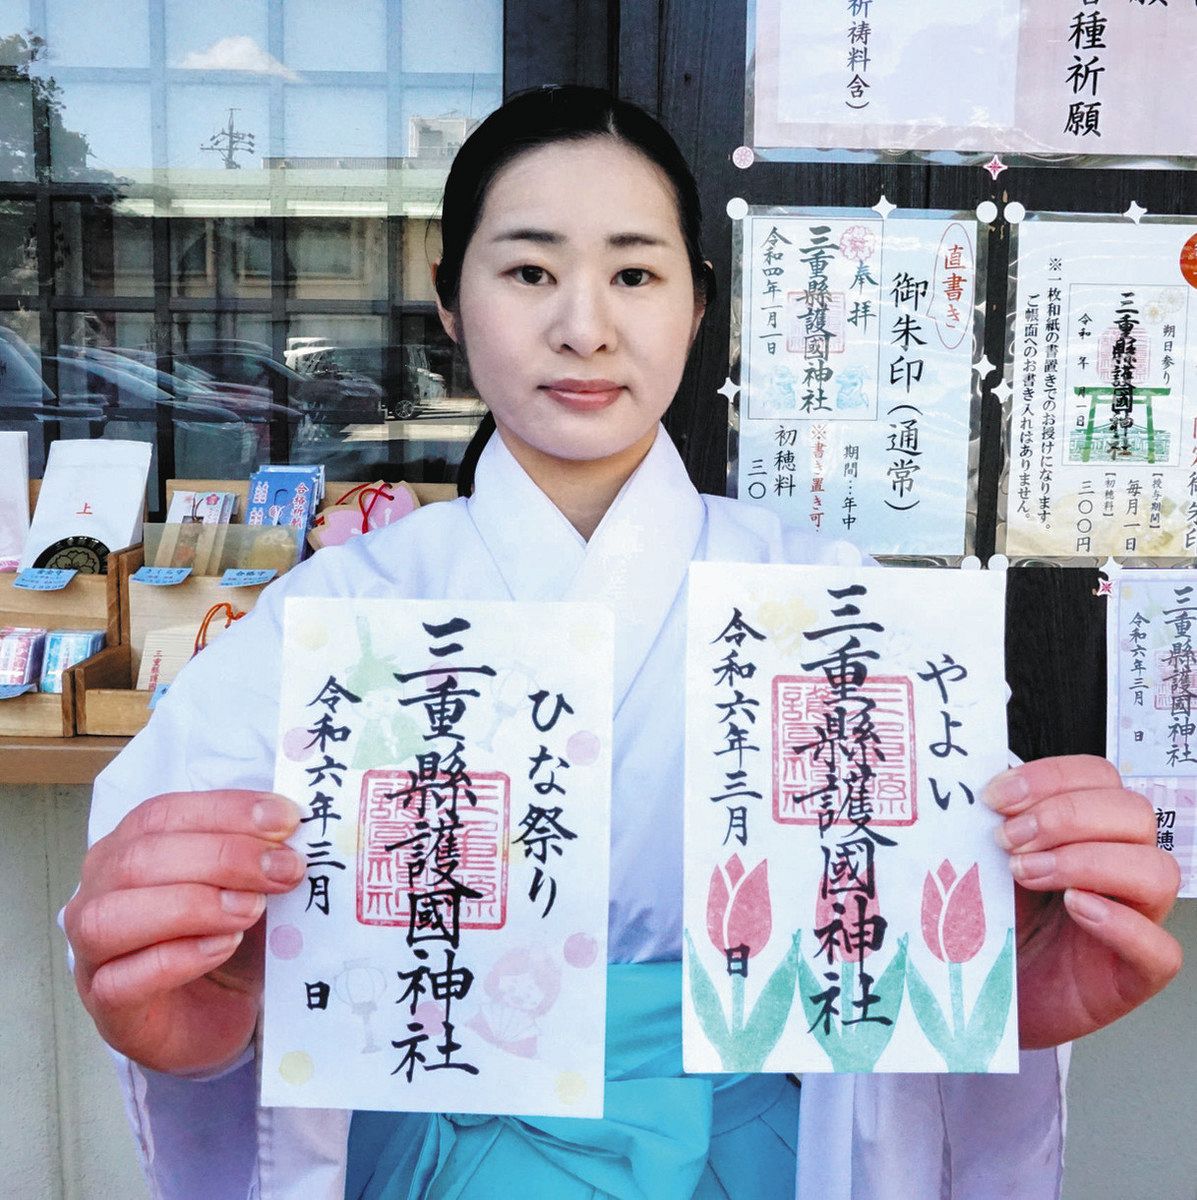 各種祈願
祈祷料含)
直書き
御朱印(通常)
期間:年中
※書き置き可
初穂料
三〇
奉拝
三重縣護國神社
令和四年一月一日
朔日参り
三重縣護國神社
令和 年 月一日
【授与期間】
毎月一日
【初穂料】
三〇〇円
※一枚和紙の書置きでのお授けになります。
ご帳面へのお書き入れはありません。
三重縣護國神社
令和六年三月 日
初穂
上
合格祈願
合格守
三重縣護國神社
やよい
三重縣護國神社
令和六年三月
日
ひな祭り
三重縣護國神社
令和六年三月
日